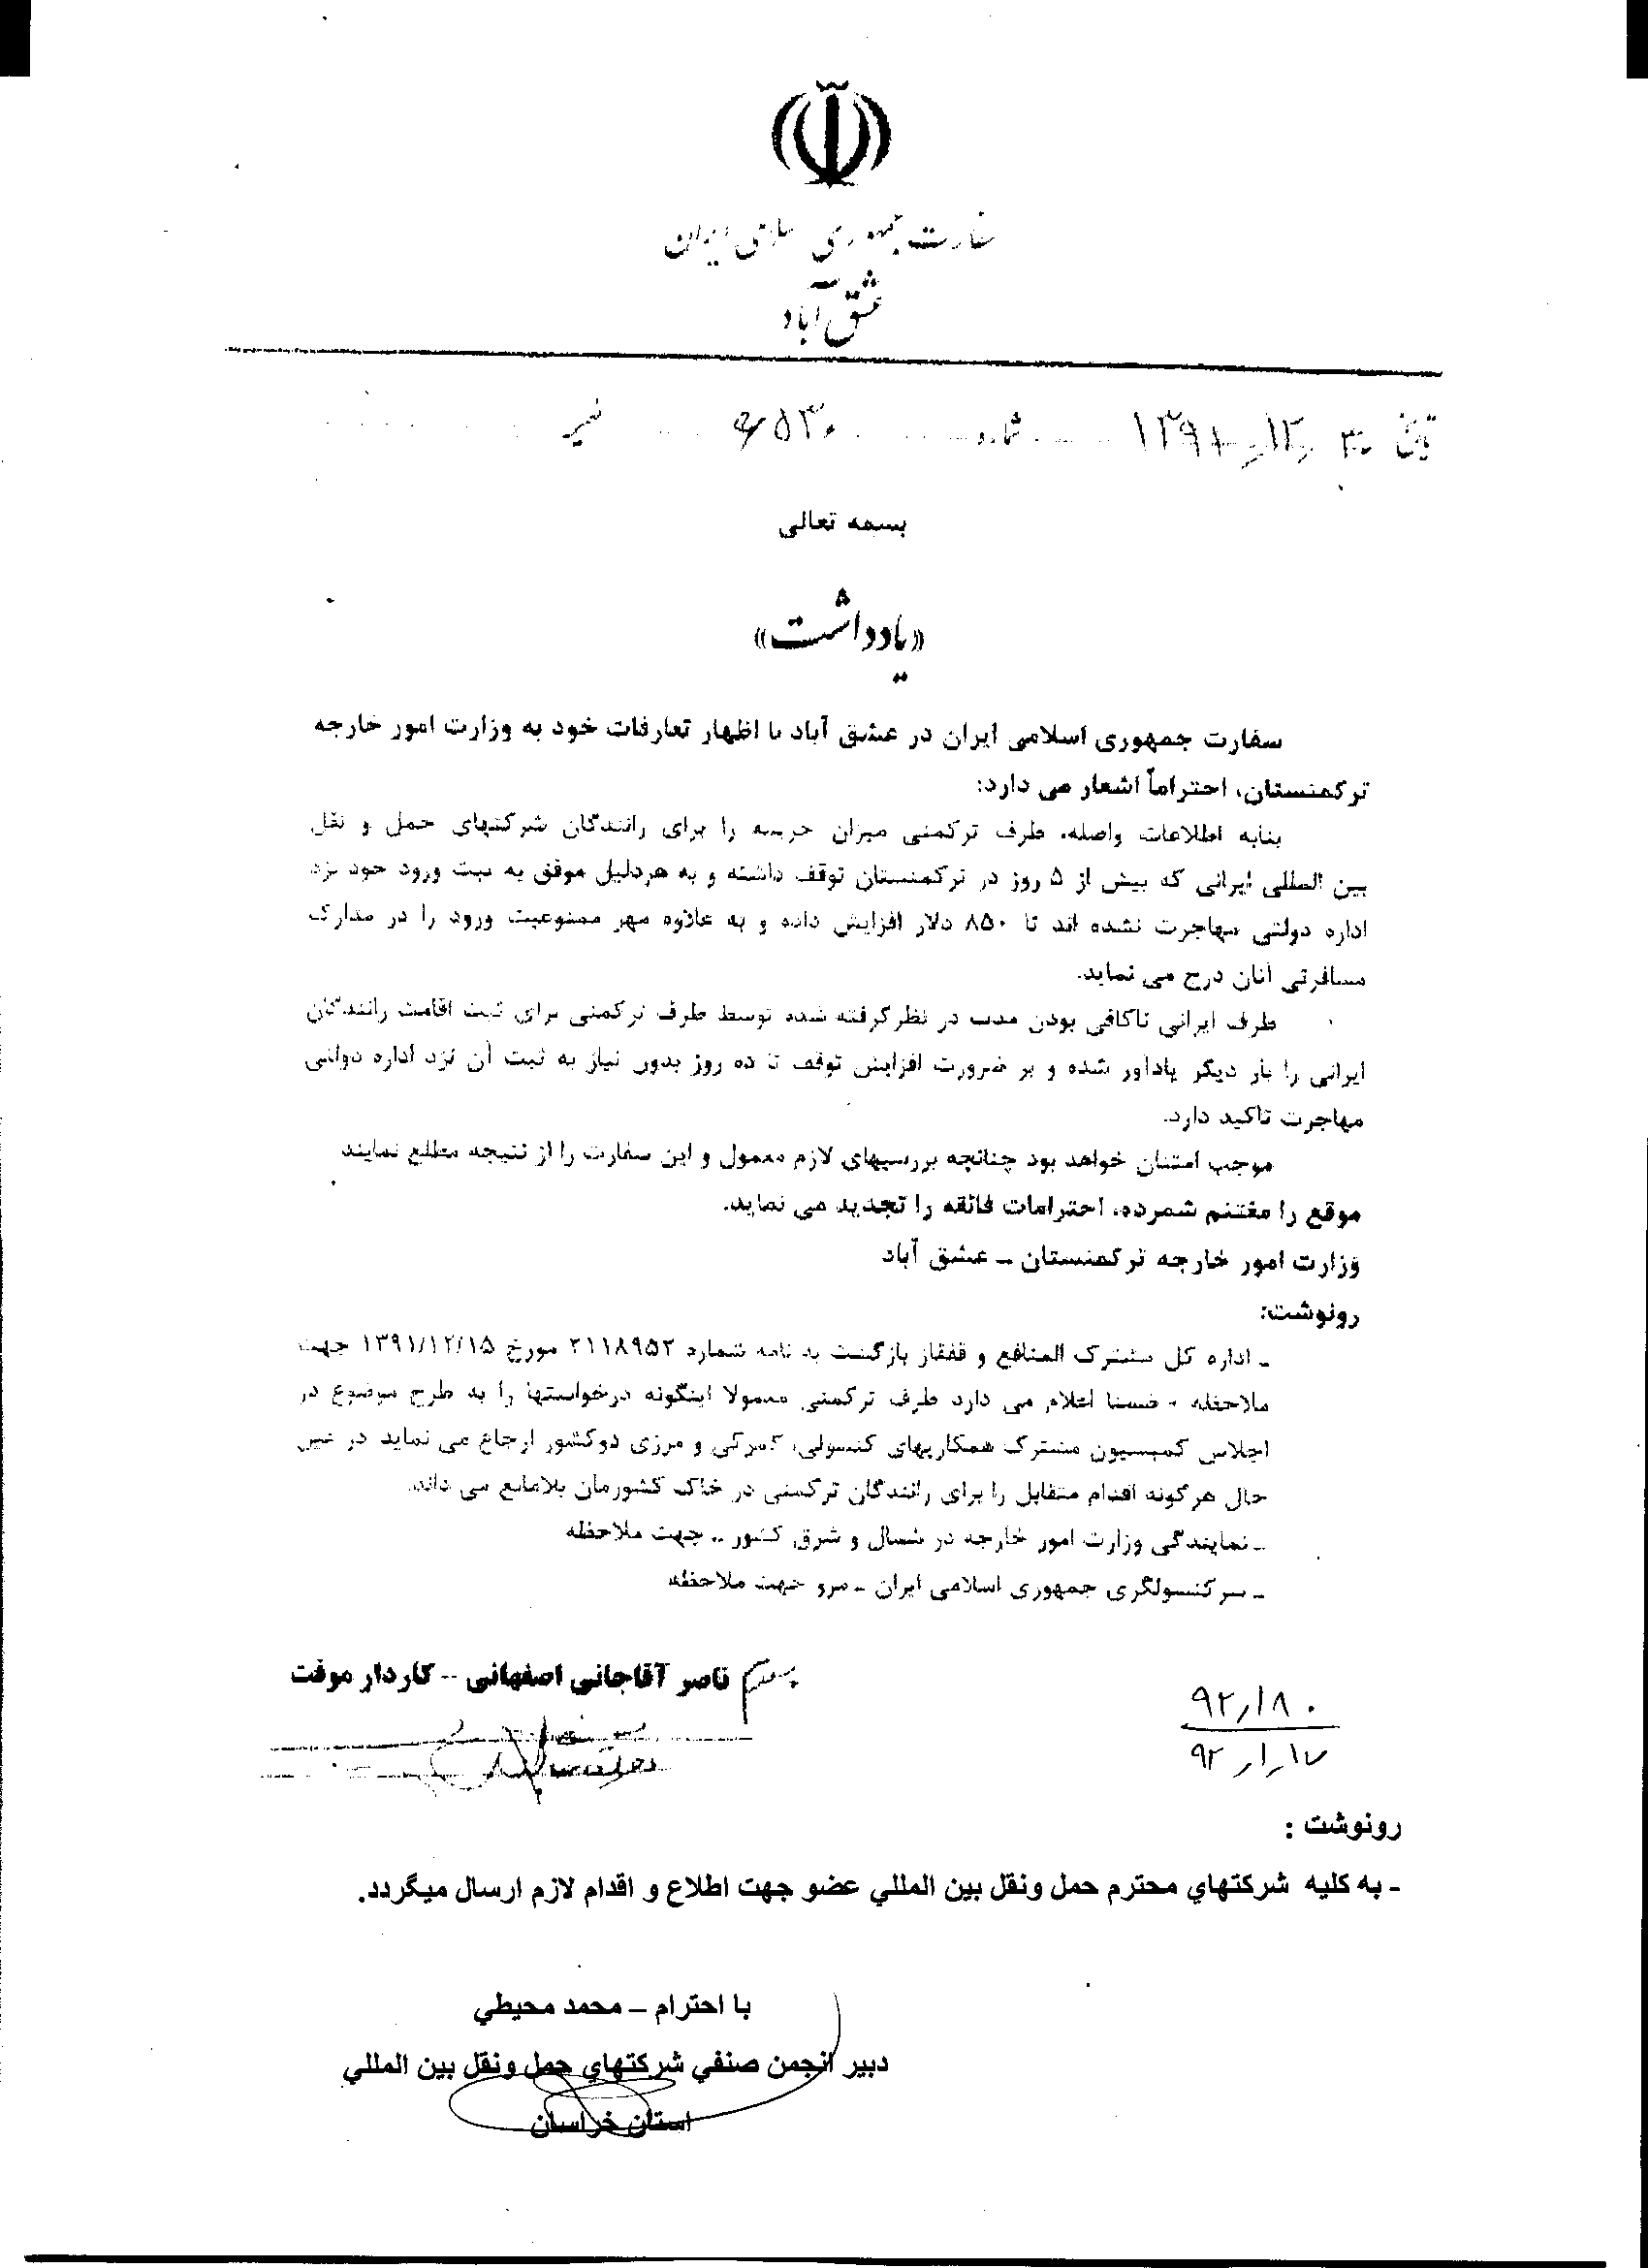 سفارت جمهوری اسلامی ایران
عشق آباد
شماره
بسمه تعالی
«یادداشت»
سفارت جمهوری اسلامی ایران در عشق آباد با اظهار تعارفات خود به وزارت امور خارجه
ترکمنستان، احتراماً اشعار می دارد:
بنابه اطلاعات واصله، طرف ترکمنی میزان جریمه را برای رانندگان شرکتهای حمل و نقل
بین المللی ایرانی که بیش از ۵ روز در ترکمنستان توقف داشته و به هردلیل موفق به ثبت ورود خود نزد
اداره دولتی مهاجرت نشده اند تا ۸۵۰ دلار افزایش داده و به علاوه مهر ممنوعیت ورود را در مدارک
مسافرتی آنان درج می نماید.
طرف ایرانی ناکافی بودن مدت در نظرگرفته شده توسط طرف ترکمنی برای ثبت اقامت رانندگان
ایرانی را بار دیگر یادآور شده و بر ضرورت افزایش توقف تا ده روز بدون نیاز به ثبت آن نزد اداره دولتی
مهاجرت تاکید دارد.
موجب امتنان خواهد بود چنانچه بررسیهای لازم معمول و این سفارت را از نتیجه مطلع نمایند
موقع را مغتنم شمرده، احترامات فائقه را تجدید می نماید.
وزارت امور خارجه ترکمنستان ـ عشق آباد
رونوشت:
ـ اداره کل مشترک المنافع و قفقاز بازگشت به نامه شماره ۲۱۱۸۹۵۲ مورخ ۱۳۹۱/۱۲/۱۵ جهت
ملاحظه - ضمنا اعلام می دارد طرف ترکمنی معمولا اینگونه درخواستها را به طرح موضوع در
اجلاس کمیسیون مشترک همکاریهای کنسولی، گمرکی و مرزی دوکشور ارجاع می نماید در عین
حال هرگونه اقدام متقابل را برای رانندگان ترکمنی در خاک کشورمان بلامانع می داند.
ـ نمایندگی وزارت امور خارجه در شمال و شرق کشور ـ جهت ملاحظه
ـ سرکنسولگری جمهوری اسلامی ایران ـ مرو جهت ملاحظه
ناصر آقاجانی اصفهانی -- کاردار موقت
۹۲٫۱۸۰
۹۲٫۱٫۱۷
رونوشت :
ـ به کلیه شرکتهاي محترم حمل ونقل بین المللي عضو جهت اطلاع و اقدام لازم ارسال میگردد.
با احترام ـ محمد محیطي
دبیر انجمن صنفي شرکتهاي حمل ونقل بین المللي
استان خراسان